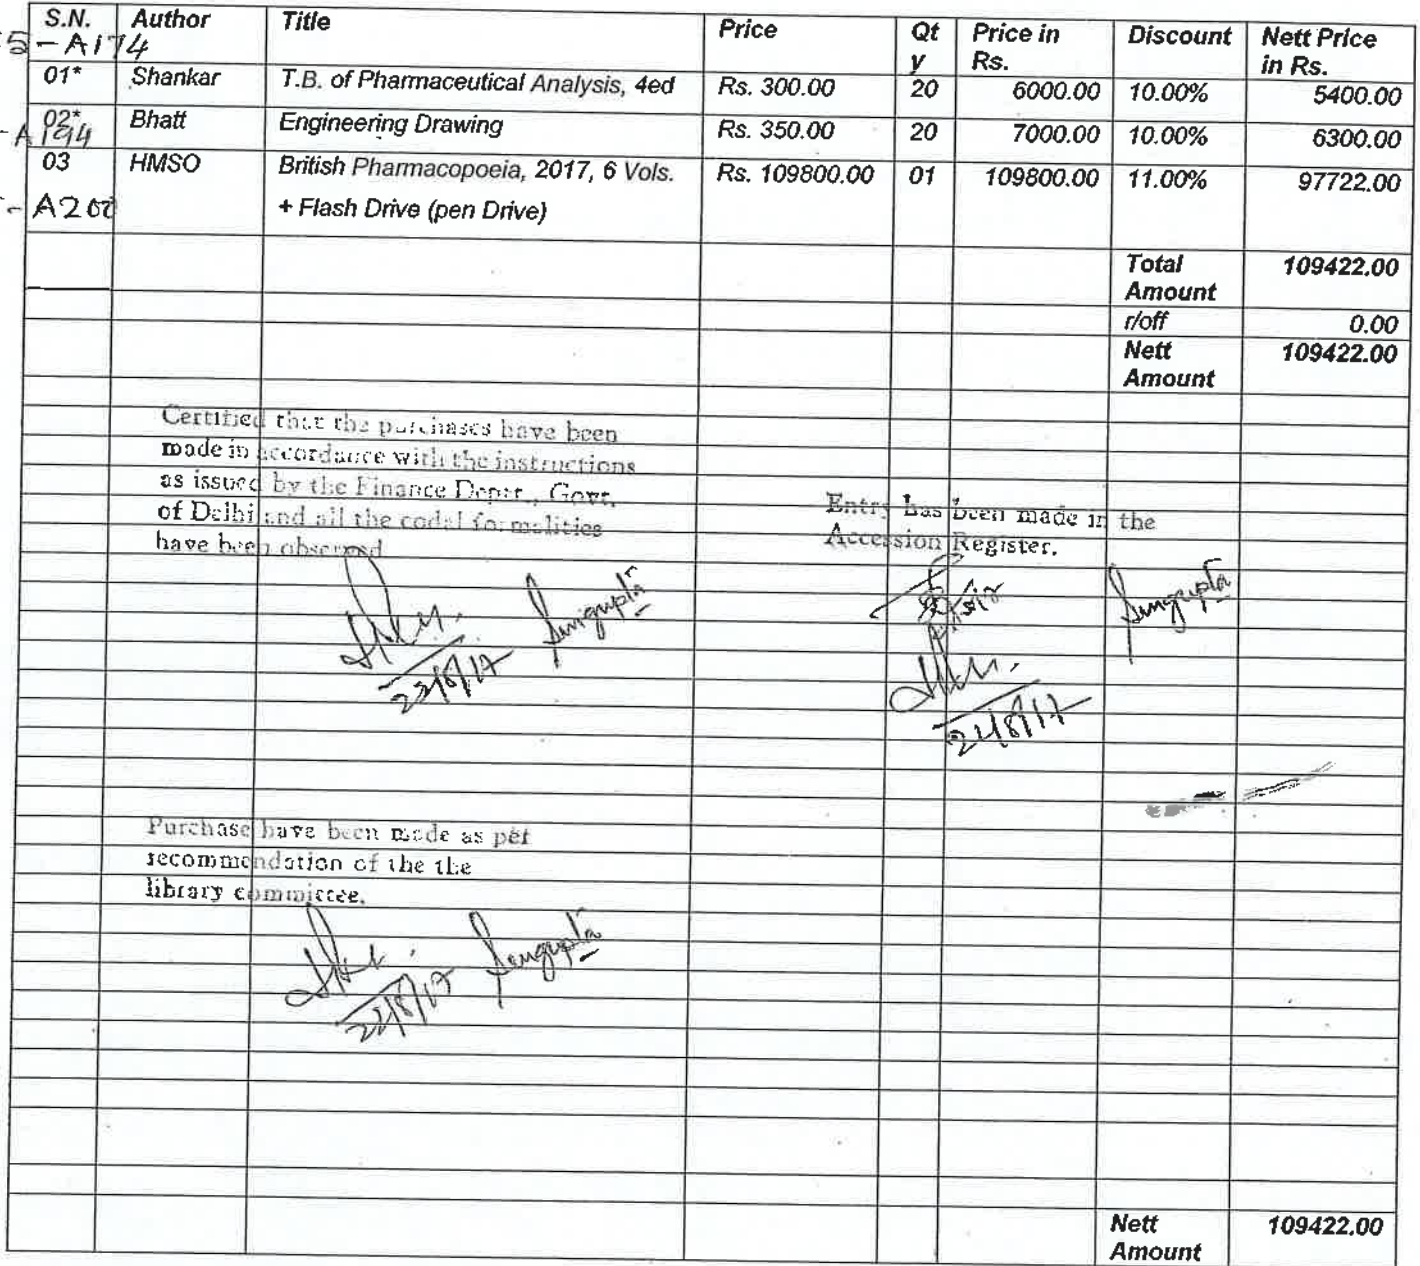 S.N. Author Title Price Qt y Price in Rs. Discount Nett Price in Rs.
- A174
01* Shankar T.B. of Pharmaceutical Analysis, 4ed Rs. 300.00 20 6000.00 10.00% 5400.00
02* Bhatt Engineering Drawing Rs. 350.00 20 7000.00 10.00% 6300.00
- A194
03 HMSO British Pharmacopoeia, 2017, 6 Vols. Rs. 109800.00 01 109800.00 11.00% 97722.00
- A200 + Flash Drive (pen Drive)
Total Amount 109422.00
r/off 0.00
Nett Amount 109422.00
Certified that the purchases have been
made in accordance with the instructions
as issued by the Finance Deptt., Govt.
of Delhi and all the codal formalities
have been observed
Entry has been made in the
Accession Register.
Sengupta
Sengupta
Purchase have been made as per
recommendation of the the
library committee.
Sengupta
22/8/17
Nett Amount 109422.00